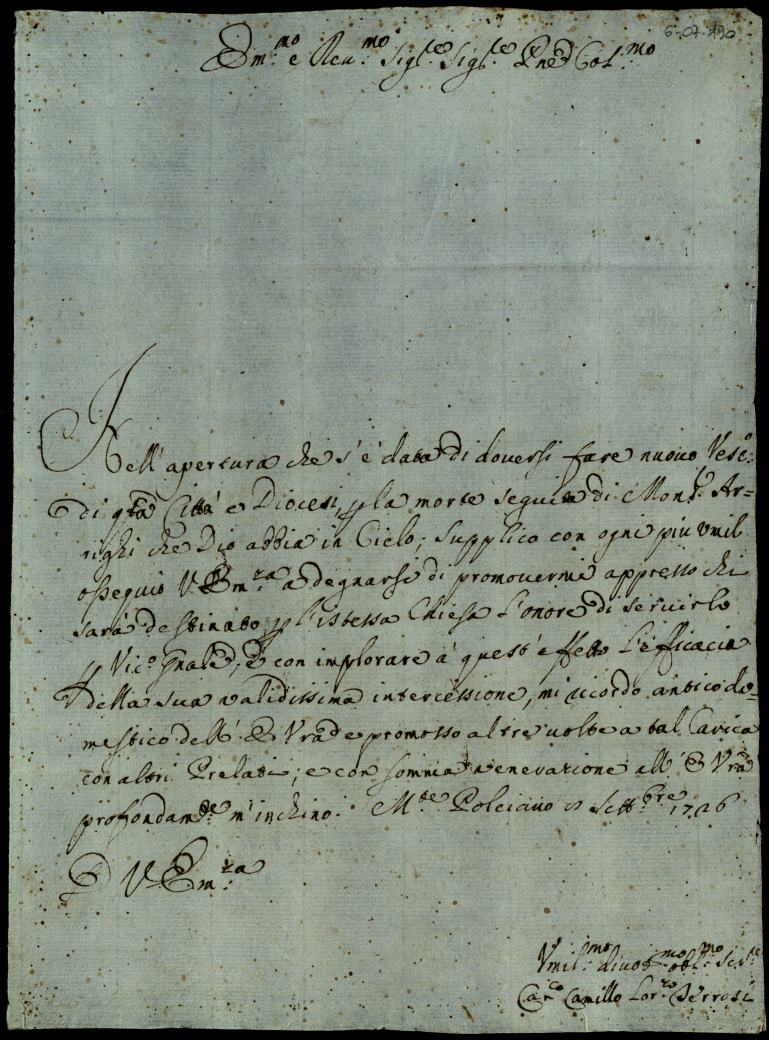 6-07-190
Em.mo e Reu.mo Sig.re Sig.re Pne Col.mo
Nell'apertura che s'è data di douersi fare nuouo Vesc:
di q.ta Città e Diocesi, p la morte seguita di Mons.r Ar=
righi che Dio abbia in Cielo; supplico con ogni più vmil
ossequio V. Em.za a degnarsi di promouermi appresso chi
sarà destinato p l'istessa Chiesa l'onore di seruirlo
p Vic.o Gnale, e con implorare à quest'effetto l'efficacia
della sua validissima intercessione, mi ricordo antico do=
mestico dell'E. Vra e promosso altre uolte a tal Carica
con altri Prelati; e con somma uenerazione all'E Vra
profondam.te m'inchino. M.te Polciano Sett.bre 1726
D V. Em.za
Vmil.mo diuot.mo obl.mo Ser.re
Can.co Camillo Lor.zo